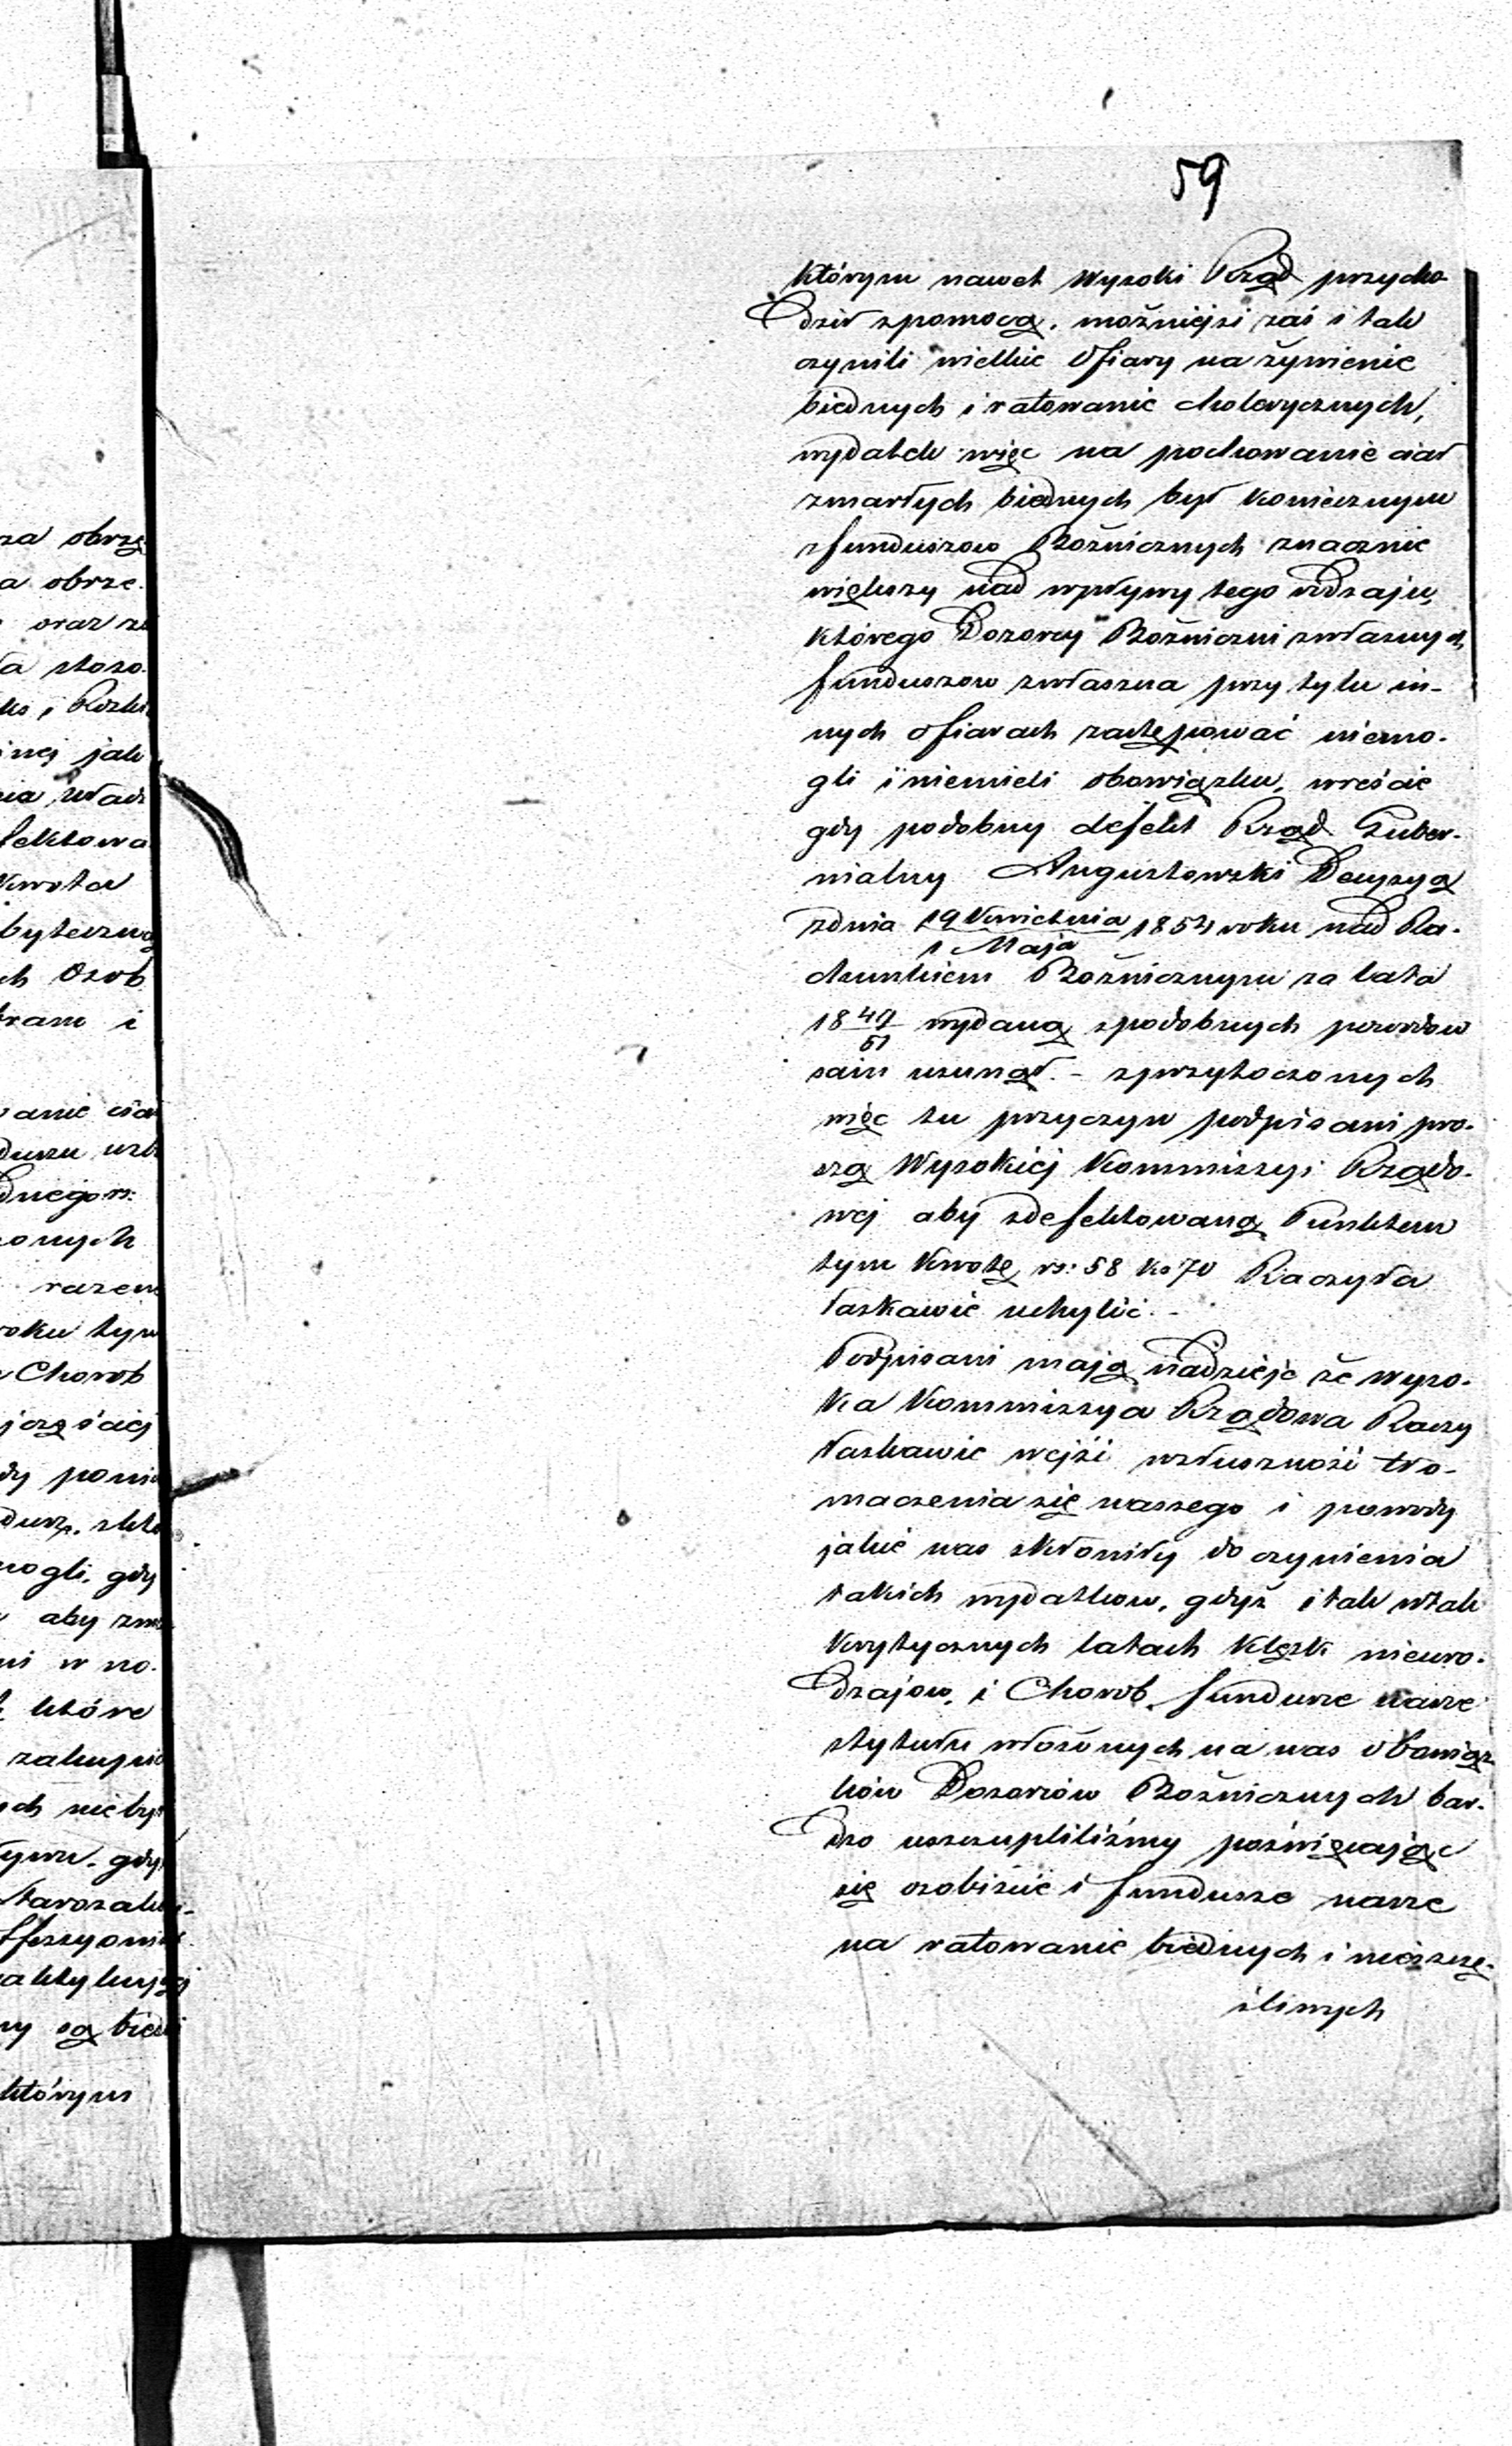 59
którym nawet Wysoki Rząd przycho-
dził z pomocą. możniejsi zaś i tak
czynili wielkie Ofiary na żywienie
biednych i ratowanie cholerycznych,
wydatek więc na pochowanie ciał
zmarłych biednych był koniecznym
z funduszow Bożnicznych znacznie
większy nad wpływy tego rodzaju,
którego Dozorcy Bożniczni z własnych
funduszow zwłaszcza przy tylu in-
nych ofiarach zastępować niemo-
gli i niemieli obowiązku, wreście
gdy podobny defekt Rząd Guber-
nialny Augustowski Decyzyą
z dnia 19 Kwietnia / 1 Maja 1854 roku nad Ra-
chunkiem Bożnicznym za lata
18 49/51 wydaną z podobnych powodow
sam usunął. - z przytoczonych
więc tu przyczyn podpisani pro-
szą Wysokiej Kommissyi Rządo-
wej aby zdefektowaną Punktem
tym Kwotę rs: 58 ko 70 Raczyła
łaskawie uchylić. -
Podpisani mają nadzieje że Wyso-
ka Kommissya Rządowa Raczy
łaskawie wejść w słuszność tło-
maczenia się naszego i powody
jakie nas skłoniły do czynienia
takich wydatkow, gdyż i tak w tak
krytycznych latach klęsk nieuro-
dzajow, i Chorob, fundusze nasze
z tytułu włożonych na nas obowiąz-
ków Dozorców Bożnicznych bar-
dzo uszczupliliśmy poświęcając
się osobiście i fundusze nasze
na ratowanie biednych i nieszczę-
śliwych
za obrzę
a obrze.
oraz
a stoso.
jak
Kwota
ch Osob
razem
roku tym
Chorob
mogli, gdy
które
są bied
którym